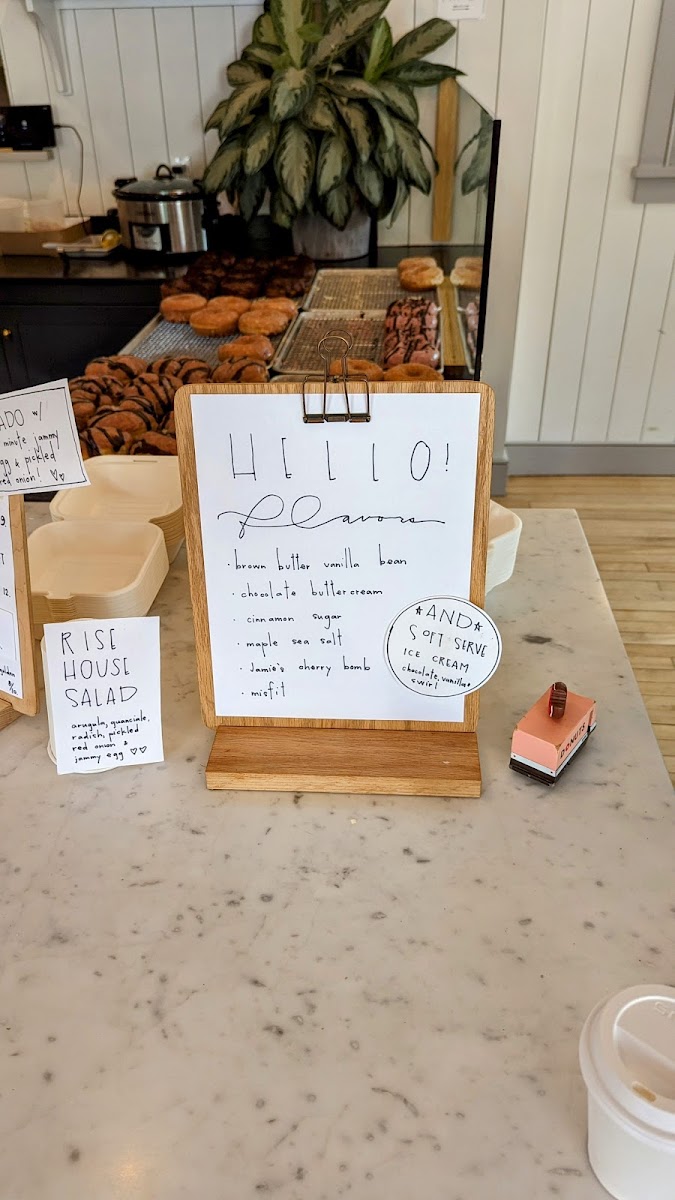 ADO w/
minute jammy
egg & pickled
red onion!
RISE
HOUSE
SALAD
arugula, guanciale,
radish, pickled
red onion &
jammy egg
HELLO!
flavors
· brown butter vanilla bean
· chocolate buttercream
· cinnamon sugar
· maple sea salt
· Jamie's cherry bomb
· misfit
AND
SOFT SERVE
ICE CREAM
chocolate, vanilla &
swirl
DONUTS